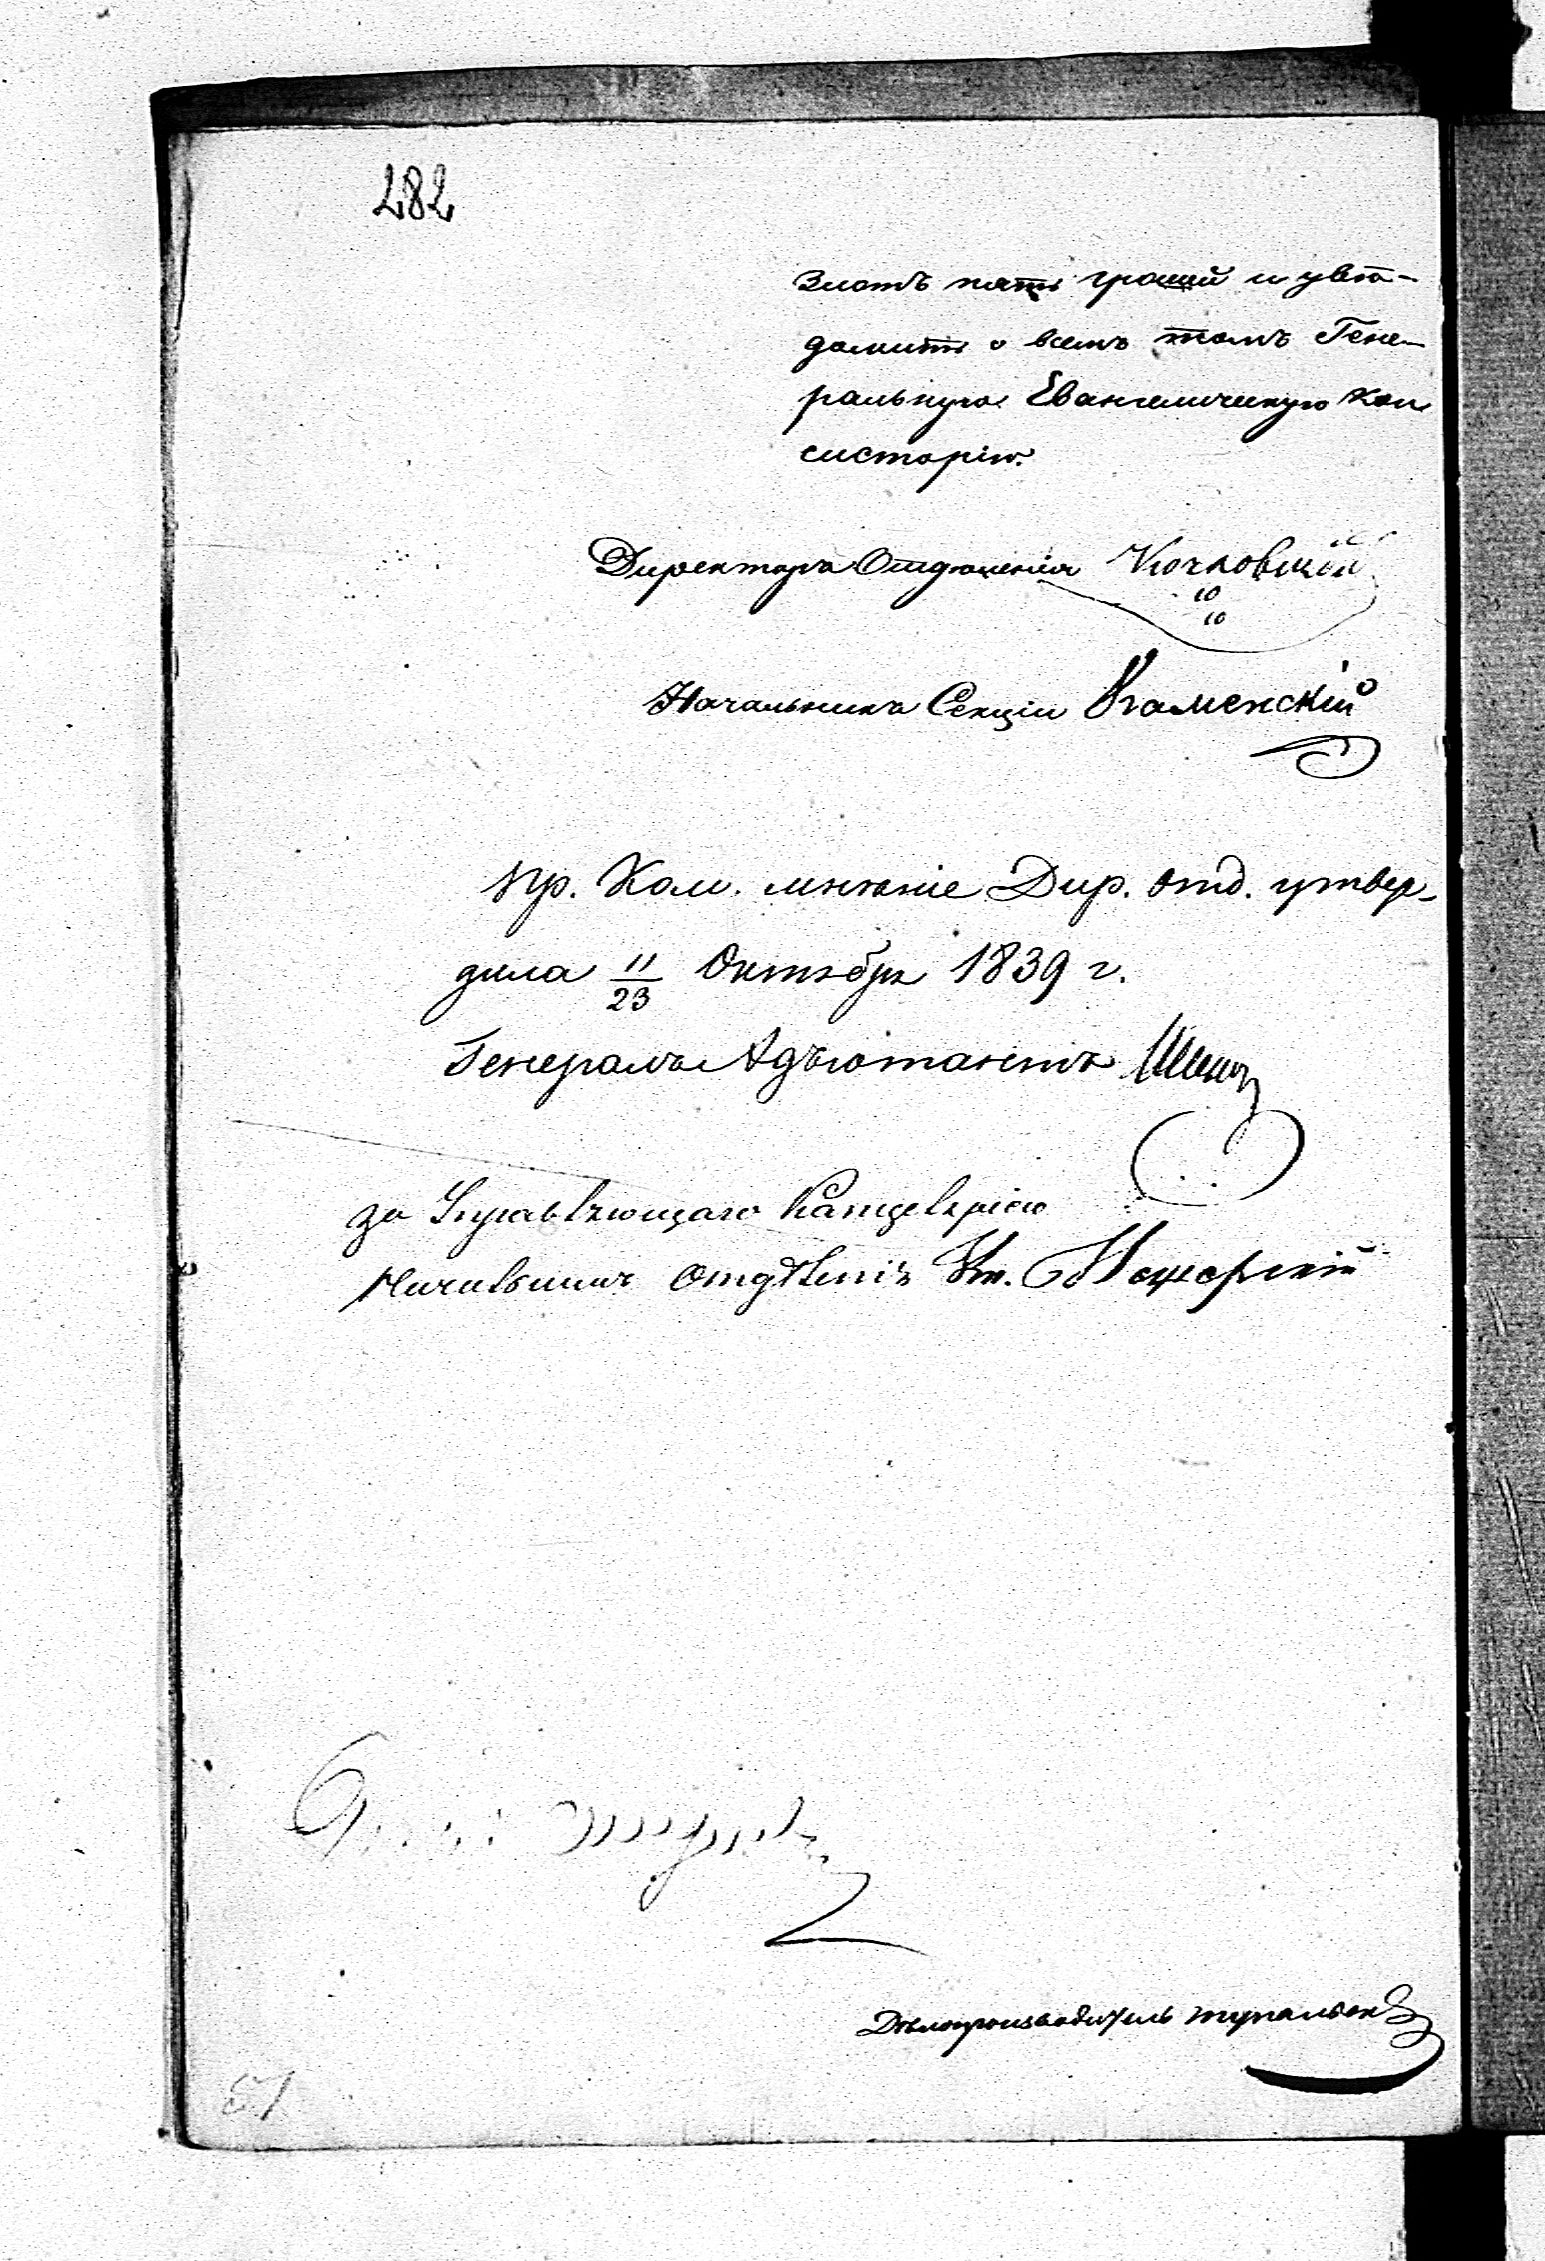 282
злотъ пять грошей и увѣ-
домить о всемъ томъ Гене-
ральную Евангелическую Кон
систорію.
Директоръ Отдѣленія
10
10
Начальникъ Секціи Каменскій
Пр. Ком. мнѣніе Дир. отд. утвер-
дила 11/23 Октября 1839 г.
Генералъ Адъютантъ
за Управляющаго Канцеляріею
Начальникъ Отдѣленія Кн.
Дѣлопроизводитель